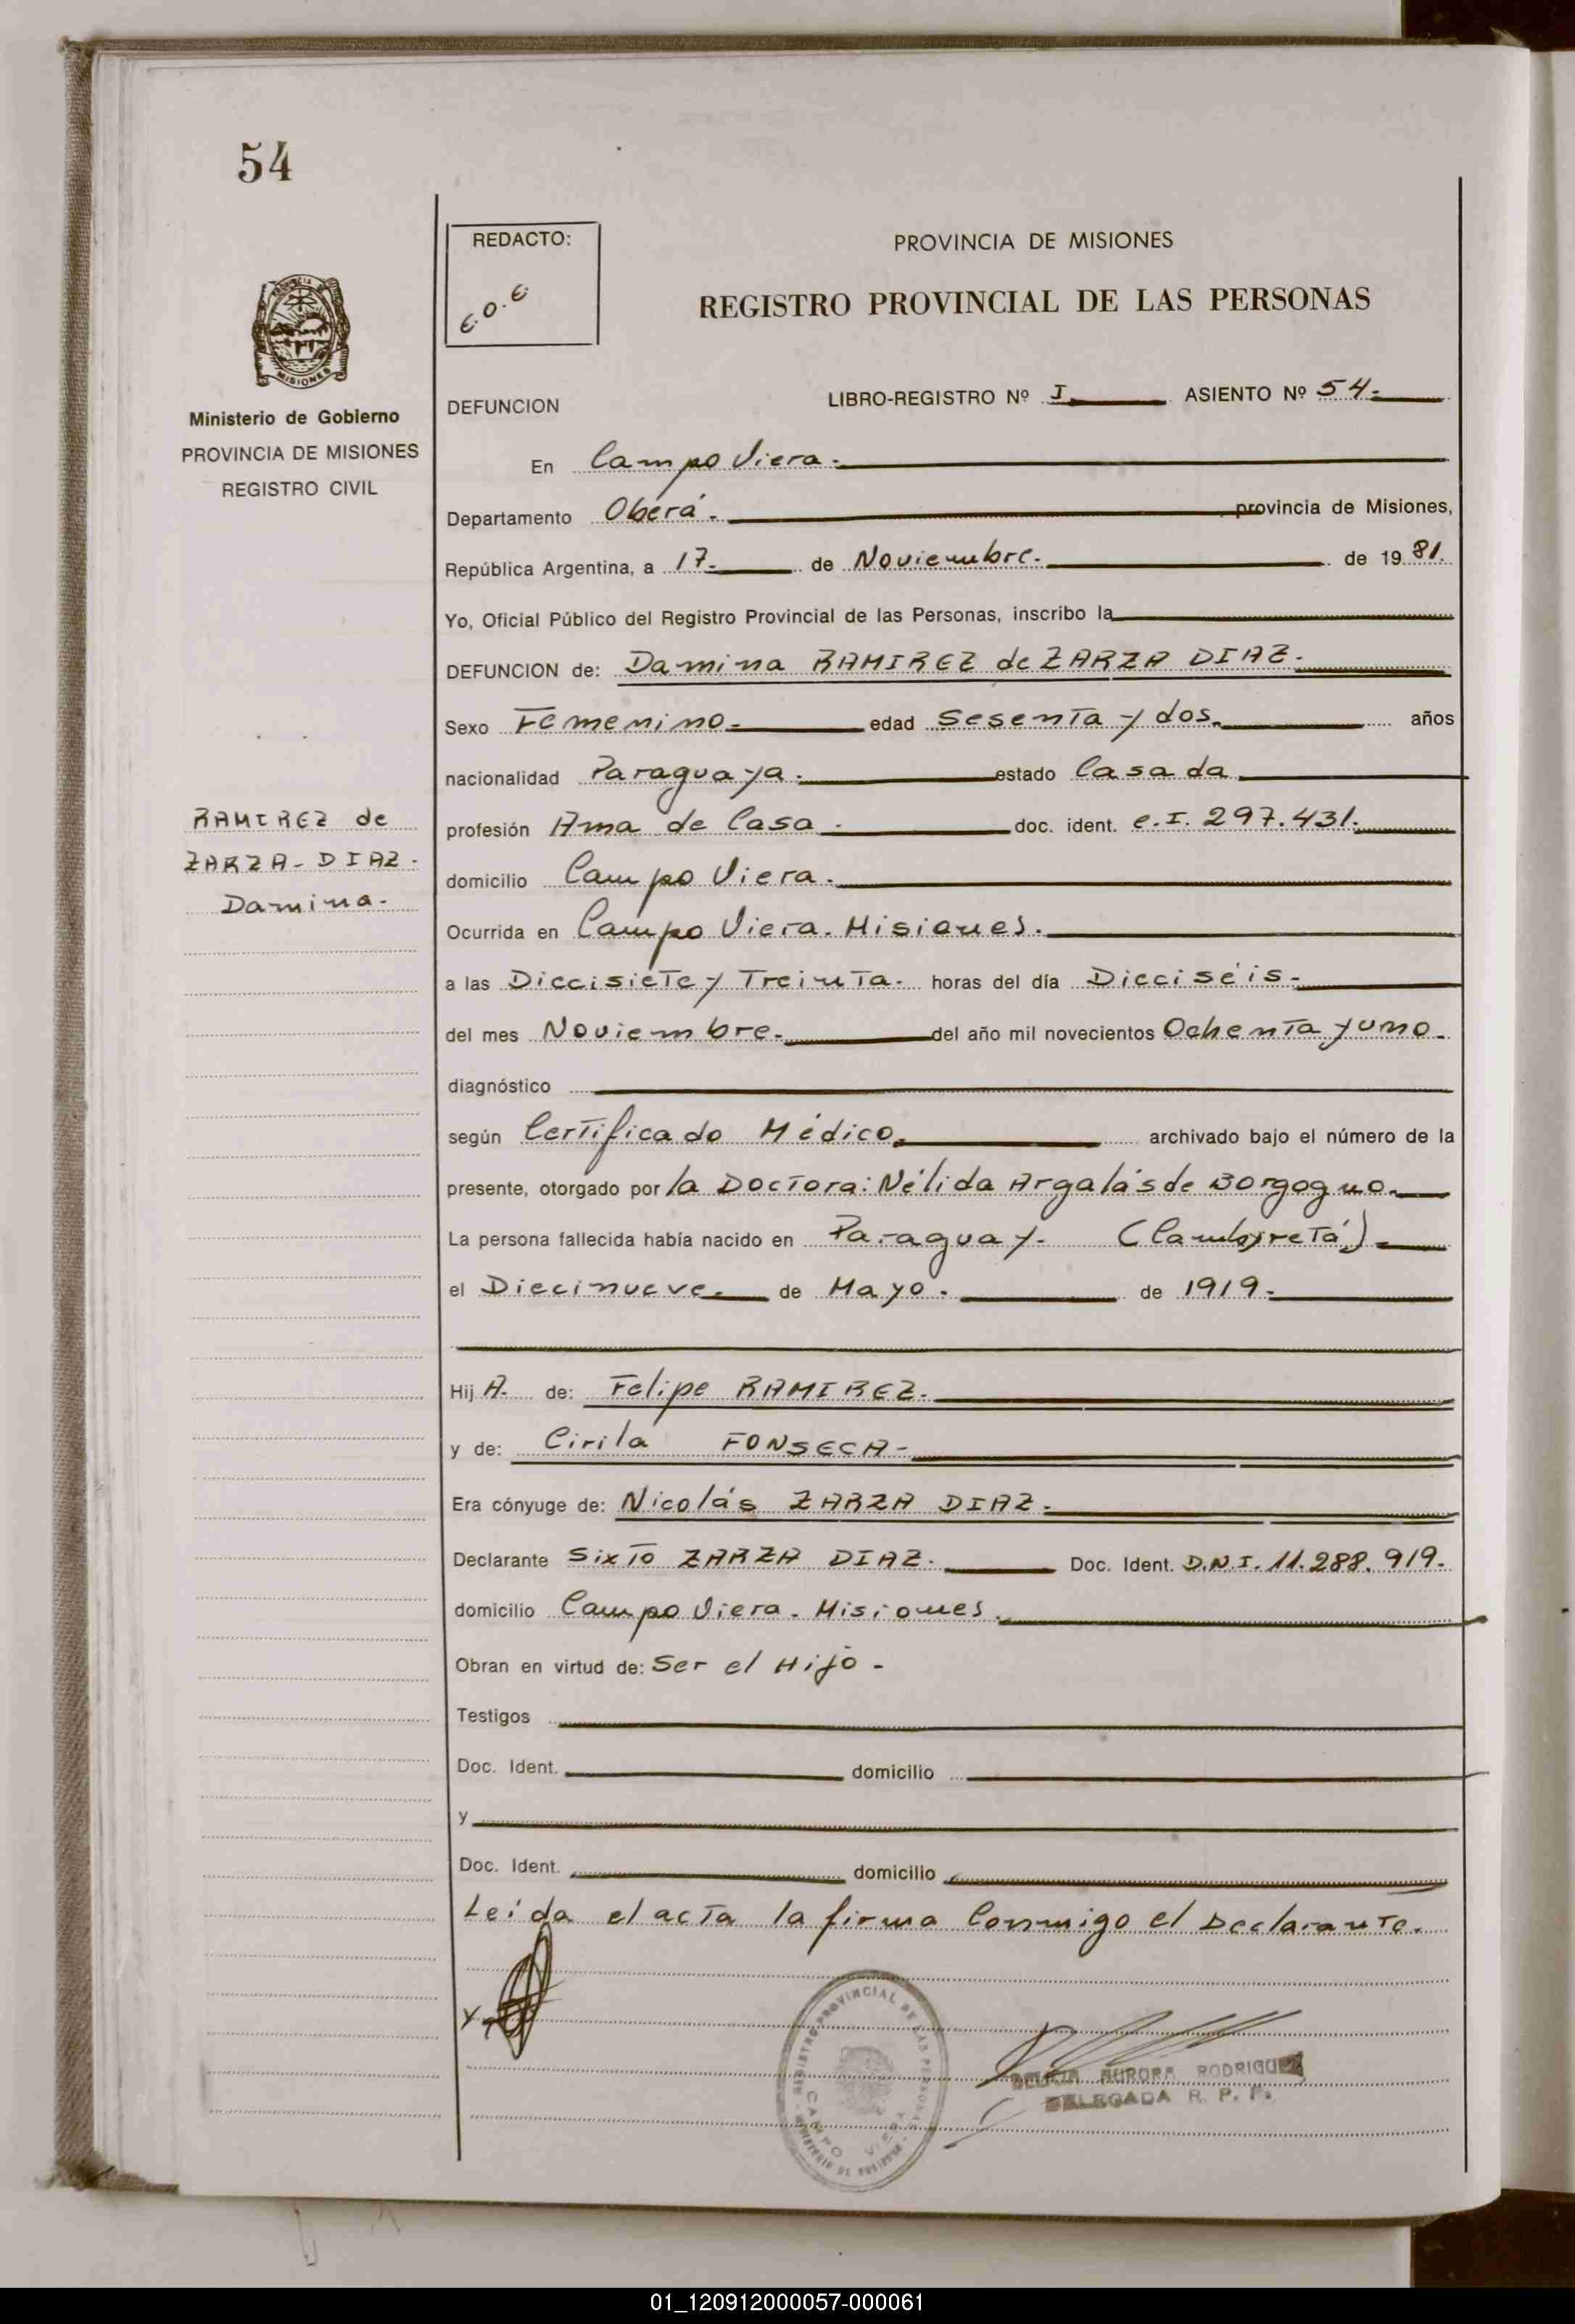 54
REDACTO:
E.O.E
PROVINCIA DE MISIONES
REGISTRO PROVINCIAL DE LAS PERSONAS
MISIONES
Ministerio de Gobierno
PROVINCIA DE MISIONES
REGISTRO CIVIL
DEFUNCION LIBRO-REGISTRO Nº I ASIENTO Nº 54.-
En Campo Viera.-
Departamento Oberá.- provincia de Misiones,
República Argentina, a 17.- de Noviembre.- de 1981.
Yo, Oficial Público del Registro Provincial de las Personas, inscribo la
DEFUNCION de: Damina RAMIREZ de ZARZA DIAZ.-
Sexo Femenino.- edad Sesenta y dos.- años
nacionalidad Paraguaya.- estado Casada
RAMIREZ de
ZARZA-DIAZ.-
Damina.-
profesión Ama de Casa.- doc. ident. C.I. 297.431.-
domicilio Campo Viera.-
Ocurrida en Campo Viera. Misiones.-
a las Diecisiete y Treinta.- horas del día Dieciséis.-
del mes Noviembre.- del año mil novecientos Ochenta y uno.-
diagnóstico
según Certificado Médico.- archivado bajo el número de la
presente, otorgado por la Doctora: Nélida Argalás de Borgogno.-
La persona fallecida había nacido en Paraguay.- (Cambyretá).-
el Diecinueve.- de Mayo.- de 1919.-
Hij A.- de: Felipe RAMIREZ.-
y de: Cirila FONSECA-
Era cónyuge de: Nicolás ZARZA DIAZ.-
Declarante Sixto ZARZA DIAZ.- Doc. Ident. D.N.I. 11.288.919.-
domicilio Campo Viera. Misiones.-
Obran en virtud de: Ser el Hijo-
Testigos
Doc. Ident. domicilio
y
Doc. Ident. domicilio
Leída el acta la firma Conmigo el Declarante.
REGISTRO PROVINCIAL DE LAS PERSONAS
CAMPO VIERA
AURORA RODRIGUEZ
DELEGADA R. P. P.
01_120912000057-000061